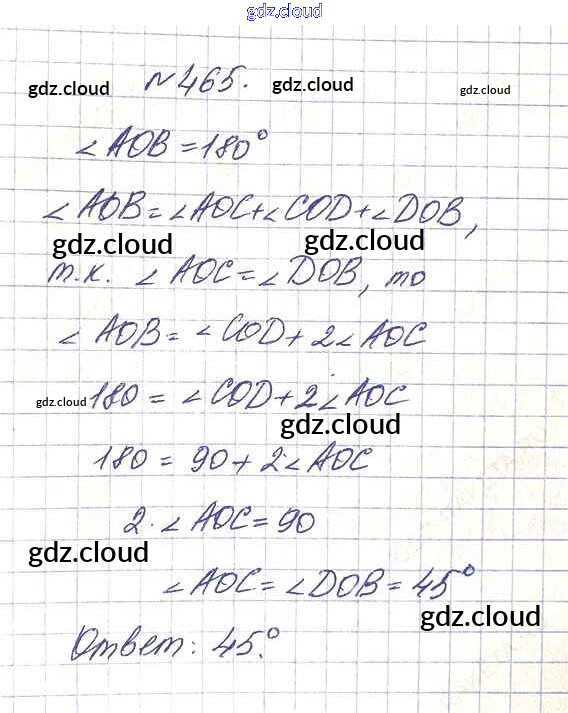 gdz.cloud
gdz.cloud № 465. gdz.cloud gdz.cloud
∠AOB = 180°
∠AOB = ∠AOC + ∠COD + ∠DOB,
gdz.cloud gdz.cloud
т.к. ∠AOC = ∠DOB, то
∠AOB = ∠COD + 2∠AOC
gdz.cloud 180 = ∠COD + 2·∠AOC
gdz.cloud
180 = 90 + 2·∠AOC
2·∠AOC = 90
gdz.cloud
∠AOC = ∠DOB = 45°
gdz.cloud
Ответ: 45°.